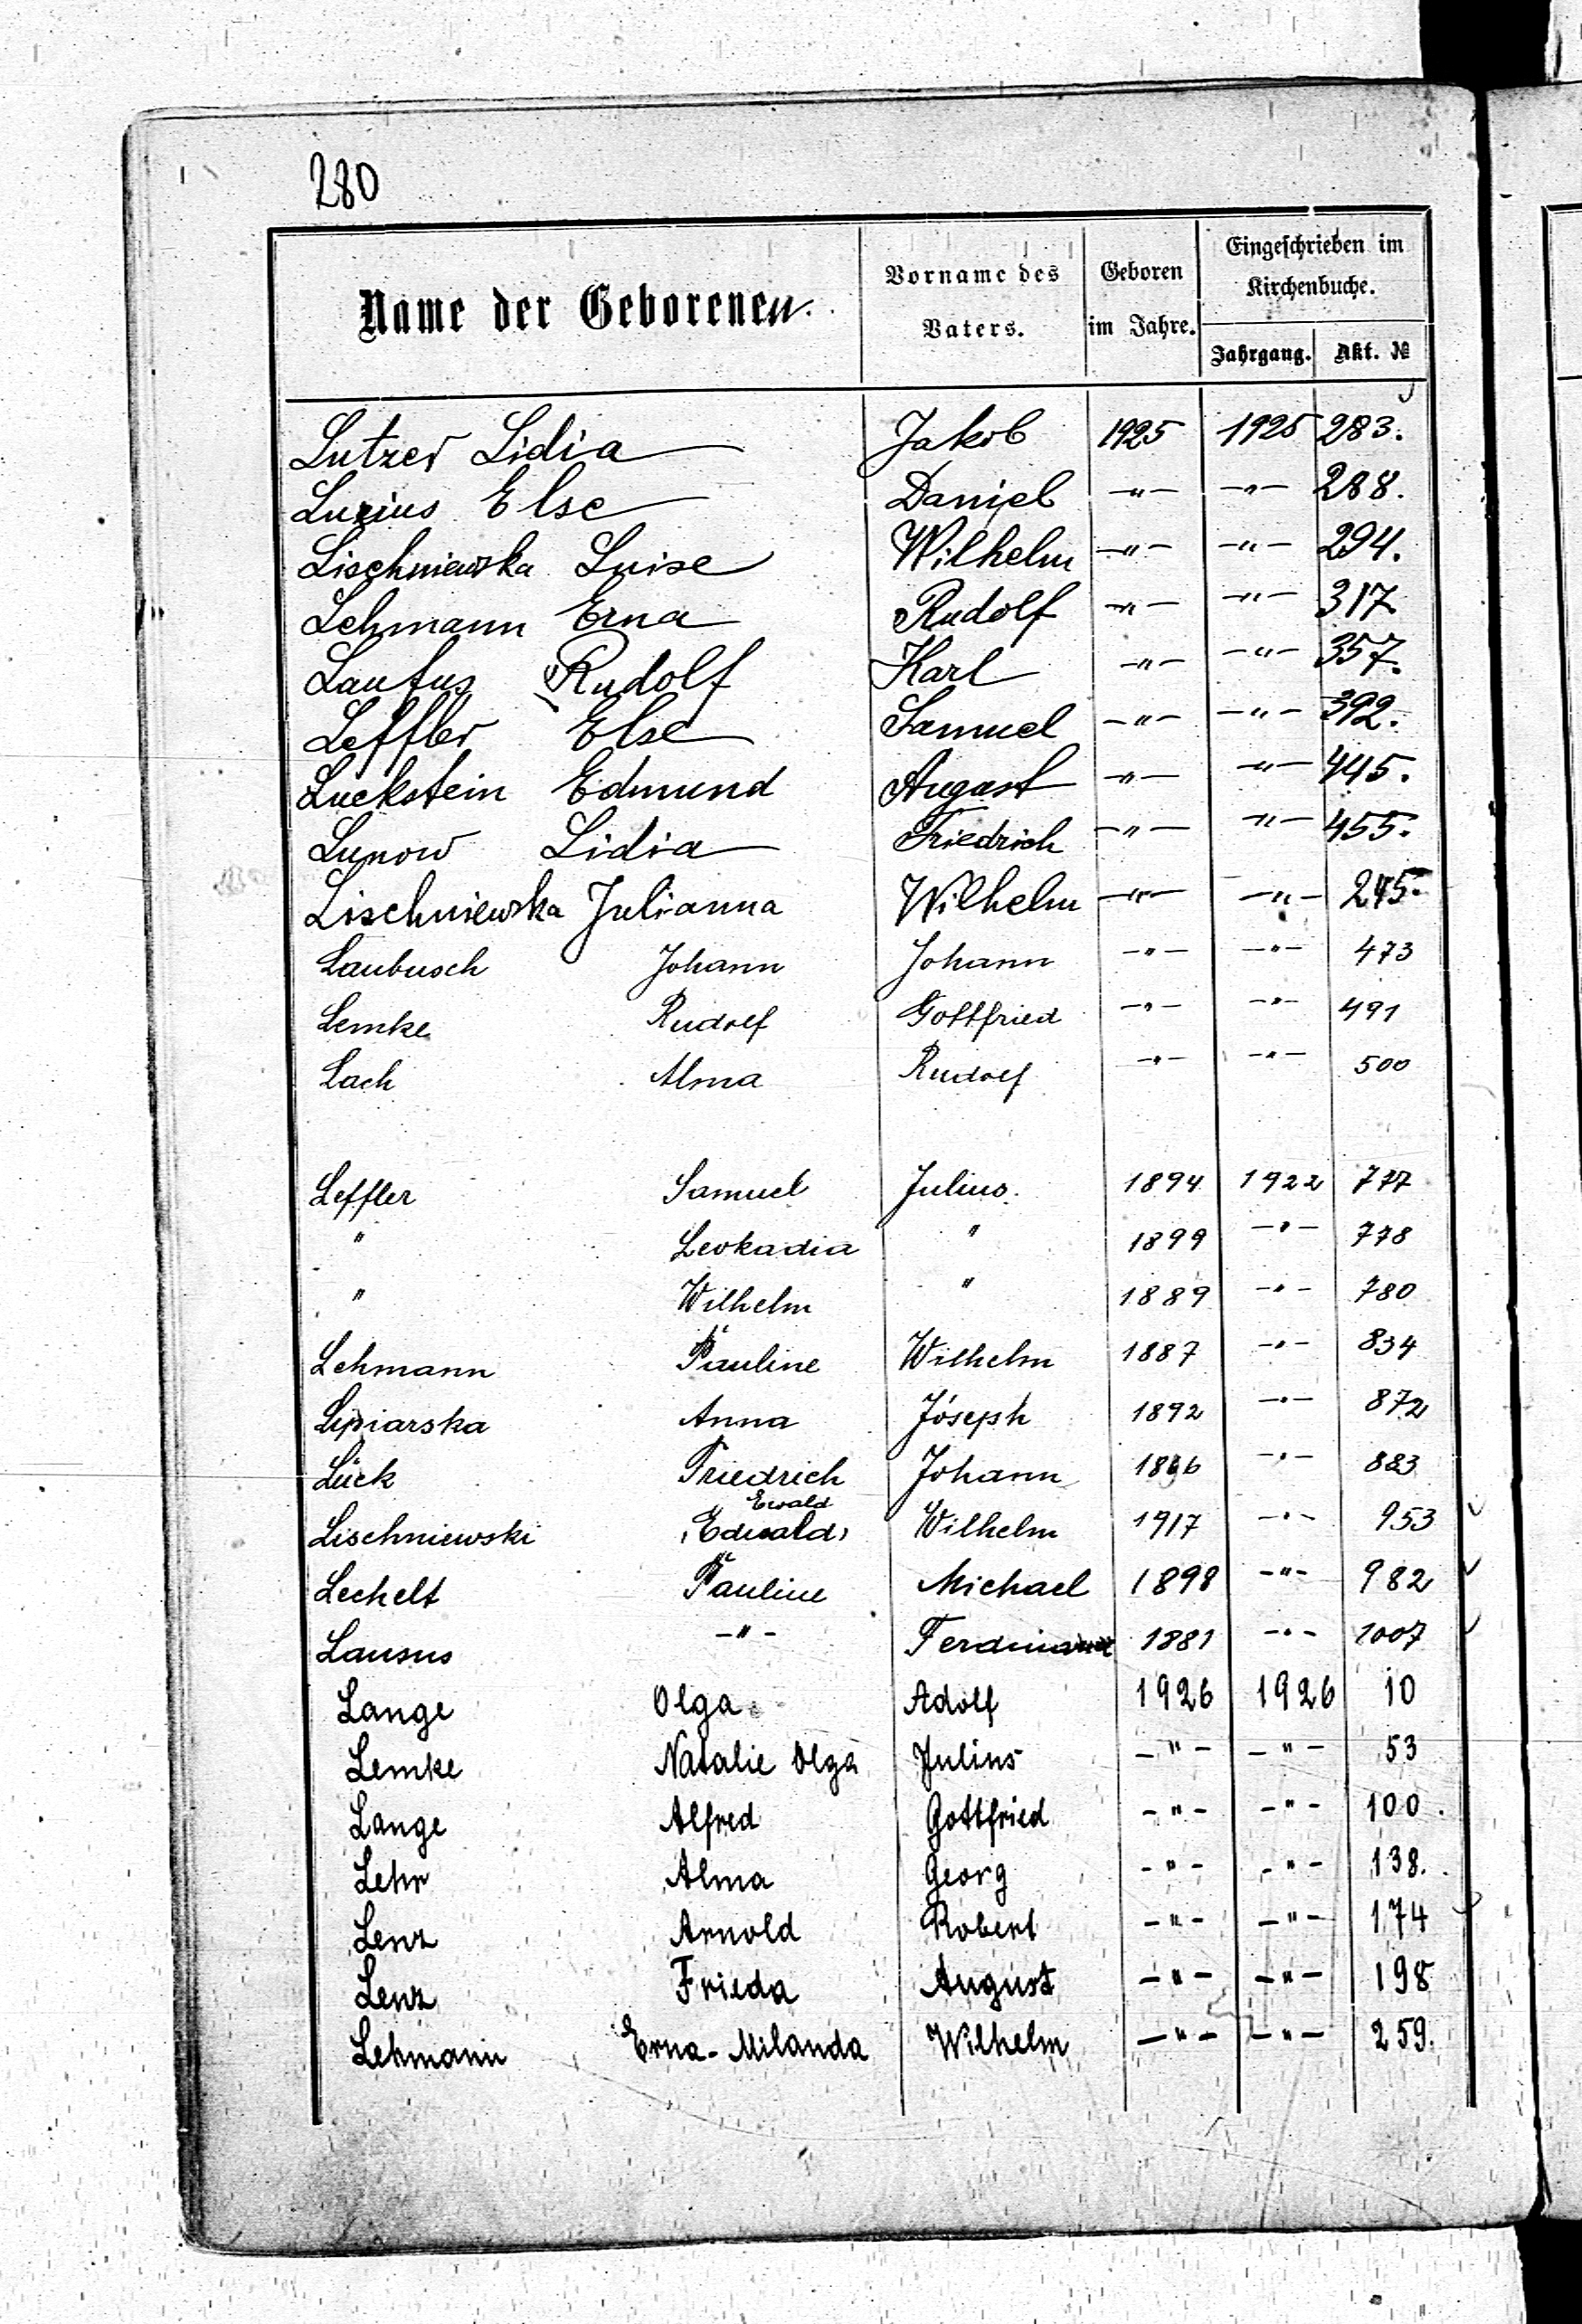 280
Name der Geborenen.
Vorname des Vaters.
Geboren im Jahre.
Eingeschrieben im Kirchenbuche.
Jahrgang. Akt. №
Lutzer Lidia Jakob 1925 1925 283.
Luzius Else Daniel -"- -"- 288.
Lischniewska Luise Wilhelm -"- -"- 294.
Lehmann Erna Rudolf -"- -"- 317.
Laufus Rudolf Karl -"- -"- 357.
Leffler Else Samuel -"- -"- 392.
Luckstein Edmund August -"- -"- 445.
Lunow Lidia Friedrich -"- -"- 455.
Lischniewska Julianna Wilhelm -"- -"-
Laubusch Johann Johann -"- -"- 473
Lemke Rudolf Gottfried -"- -"- 491
Lach Alma Rudolf -"- -"- 500
Leffler Samuel Julius. 1894 1922 777
" Leokadia " 1899 -"- 778
" Wilhelm " 1889 -"- 780
Lehmann Pauline Wilhelm 1887 -"- 834
Lipiarska Anna Jóseph 1892 -"- 872
Lück Friedrich Johann -"- 883
Ewald
Lischniewski (Edwald) Wilhelm 1917 -"- 953
Lechelt Pauline Michael 1898 -"- 982
Lausus -"- Ferdinand 1881 -"- 1007
Lange Olga Adolf 1926 1926 10
Lemke Natalie Olga Julius -"- -"- 53
Lange Alfred Gottfried -"- -"- 100.
Lehr Alma Georg -"- -"- 138.
Lenz Arnold Robert -"- -"- 174
Lenz Frieda August -"- -"- 198
Lehmann Erna-Milanda Wilhelm -"- -"- 259.